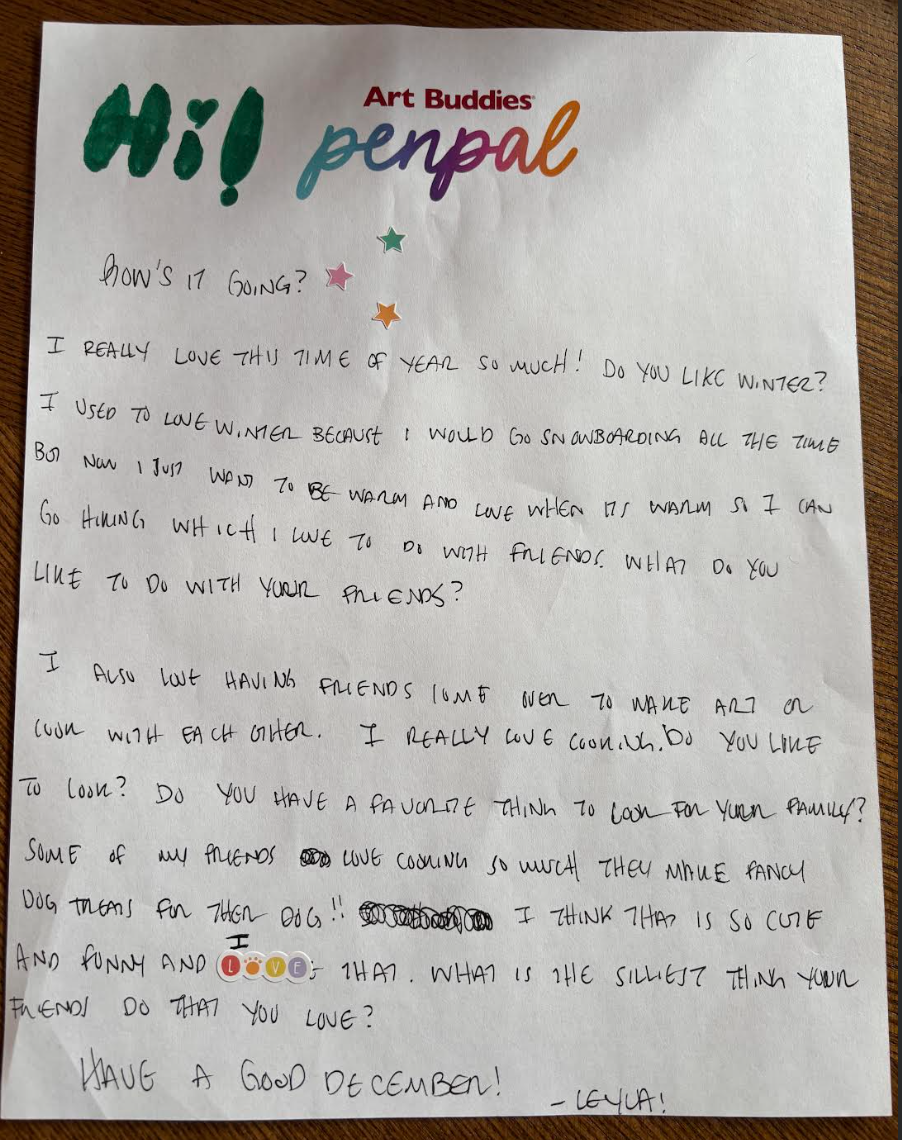 Hi!
Art Buddies
penpal
HOW'S IT GOING?
I REALLY LOVE THIS TIME OF YEAR SO MUCH! DO YOU LIKE WINTER?
I USED TO LOVE WINTER BECAUSE I WOULD GO SNOWBOARDING ALL THE TIME
BUT NOW I JUST WANT TO BE WARM AND LOVE WHEN ITS WARM SO I CAN
GO HIKING WHICH I LOVE TO DO WITH FRIENDS. WHAT DO YOU
LIKE TO DO WITH YOUR FRIENDS?
I ALSO LOVE HAVING FRIENDS COME OVER TO MAKE ART OR
COOK WITH EACH OTHER. I REALLY LOVE COOKING. DO YOU LIKE
TO COOK? DO YOU HAVE A FAVORITE THINK TO COOK FOR YOUR FAMILY?
SOME OF MY FRIENDS LOVE COOKING SO MUCH THEY MAKE FANCY
DOG TREATS FOR THEIR DOG!! I THINK THAT IS SO CUTE
AND FUNNY AND I LOVE THAT. WHAT IS THE SILLIEST THING YOUR
FRIENDS DO THAT YOU LOVE?
HAVE A GOOD DECEMBER!
- LEYLA!